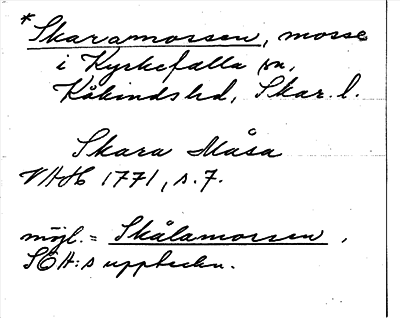 *Skaramossen, mosse
i Kyrkefalla sn,
Kåkinds hd, Skar. l.
Skara Måsa
VAH 1771, s. 7.
möjl. = Skålamossen,
SOA:s uppteckn.